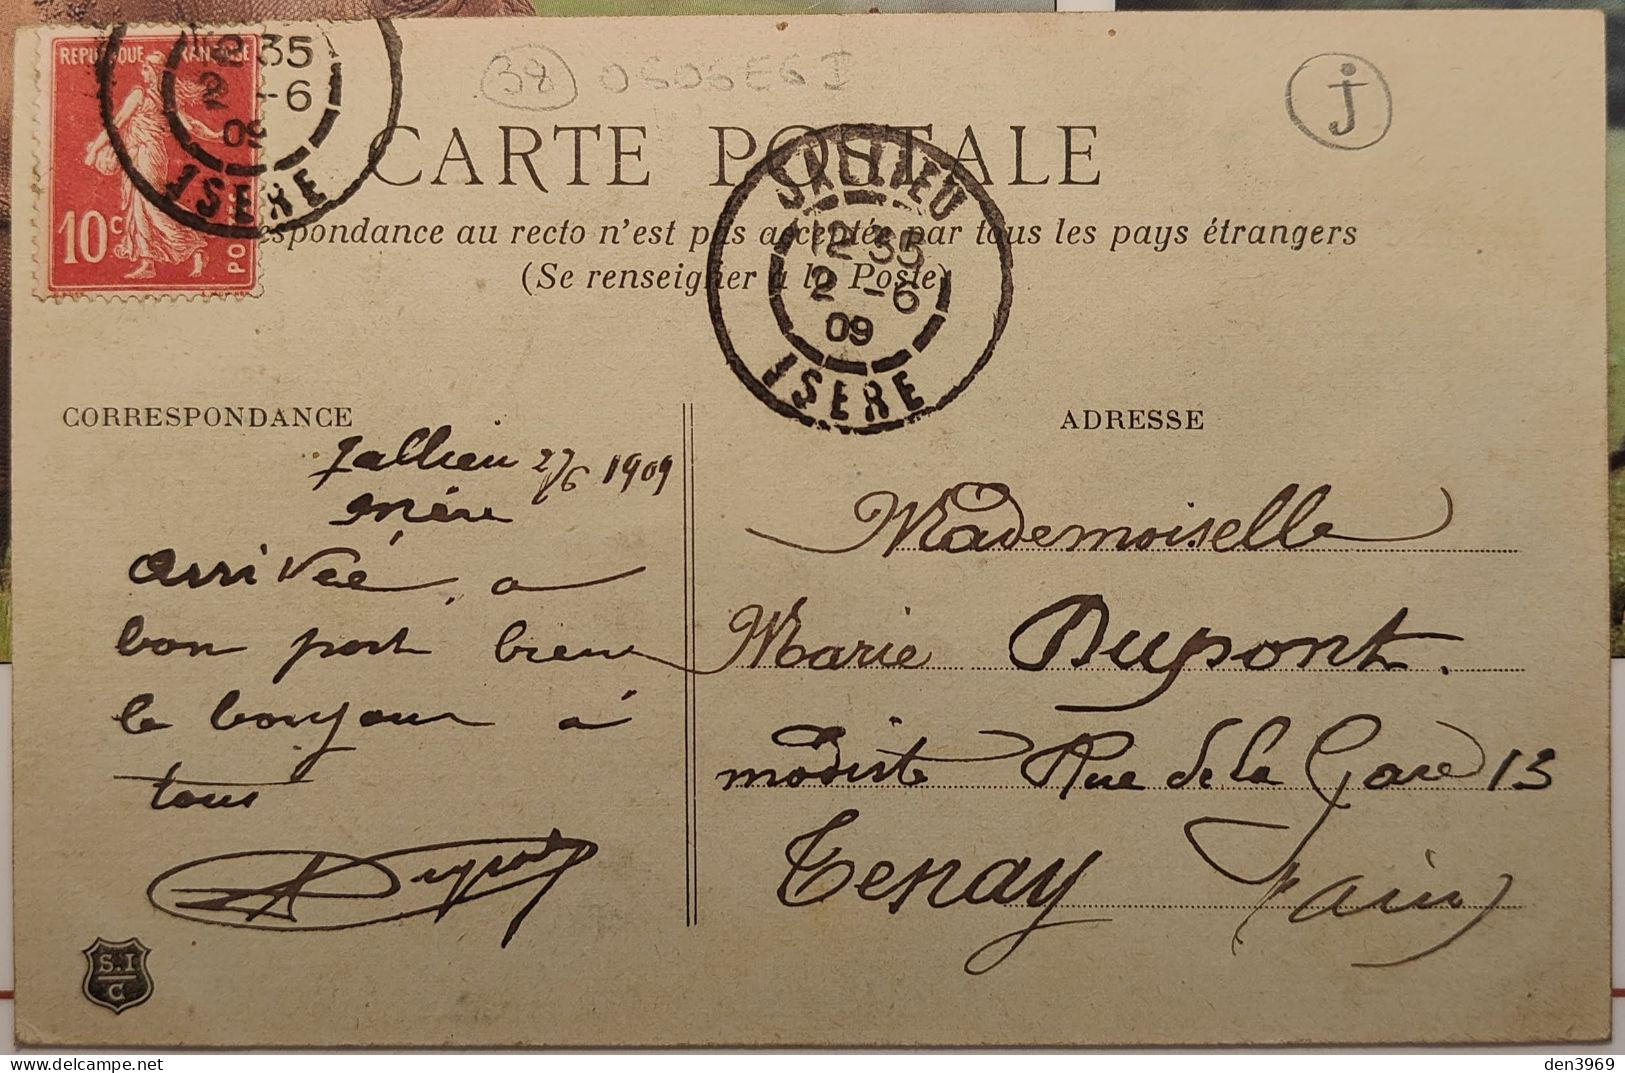 REPUBLIQUE FRANÇAISE
10c
POSTES
12 35
2 - 6
09
ISERE
38 0606E6I
j
CARTE POSTALE
JALLIEU
12 35
2 - 6
09
ISERE
espondance au recto n'est pas acceptée par tous les pays étrangers
(Se renseigner à la Poste)
CORRESPONDANCE
ADRESSE
Jallieu 2/6 1909
Mère
arrivée, a
bon port bien
le bonjour à
tous
Dupont
S.I
C
Mademoiselle
Marie Dupont.
modiste Rue de la Gare 13
Tenay
(ain)
den3969